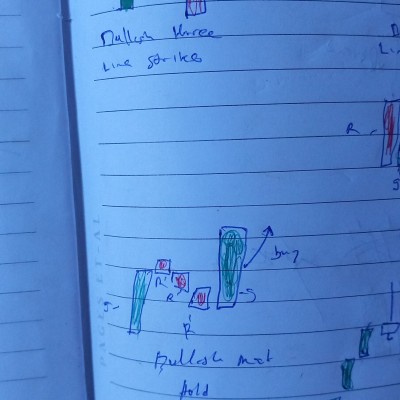 Bullish three
Line strikes
R
S
buy
R
R
S
G
R
Bullish mat
hold